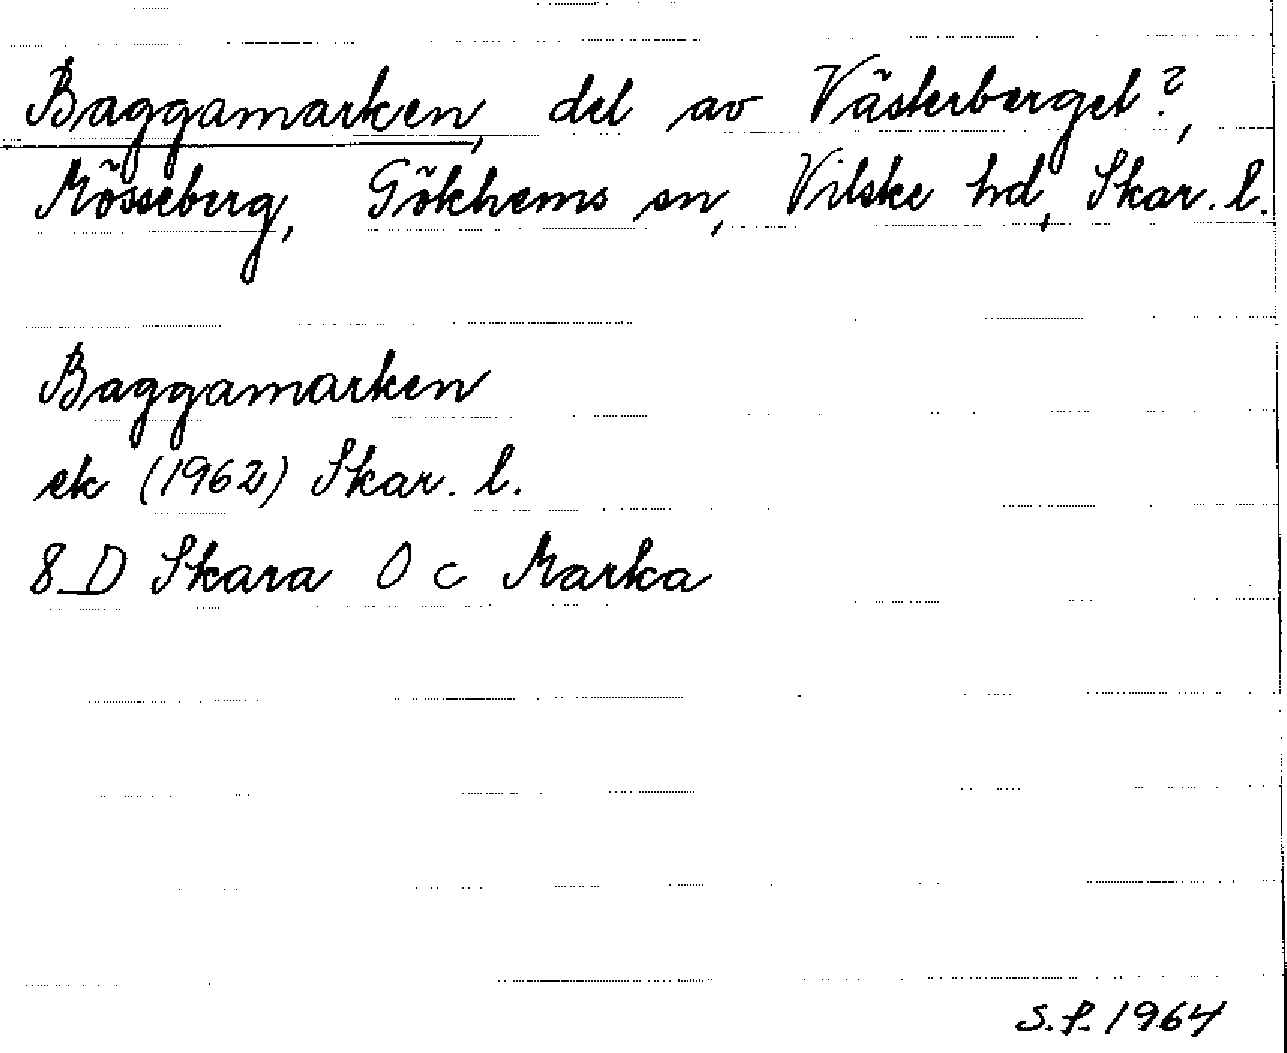 Baggamarken, del av Västerberget?,
Mösseberg, Gökhems sn, Vilske hd, Skar. l.
Baggamarken
ek (1962) Skar. l.
8 D Skara 0 c Marka
S.P. 1964